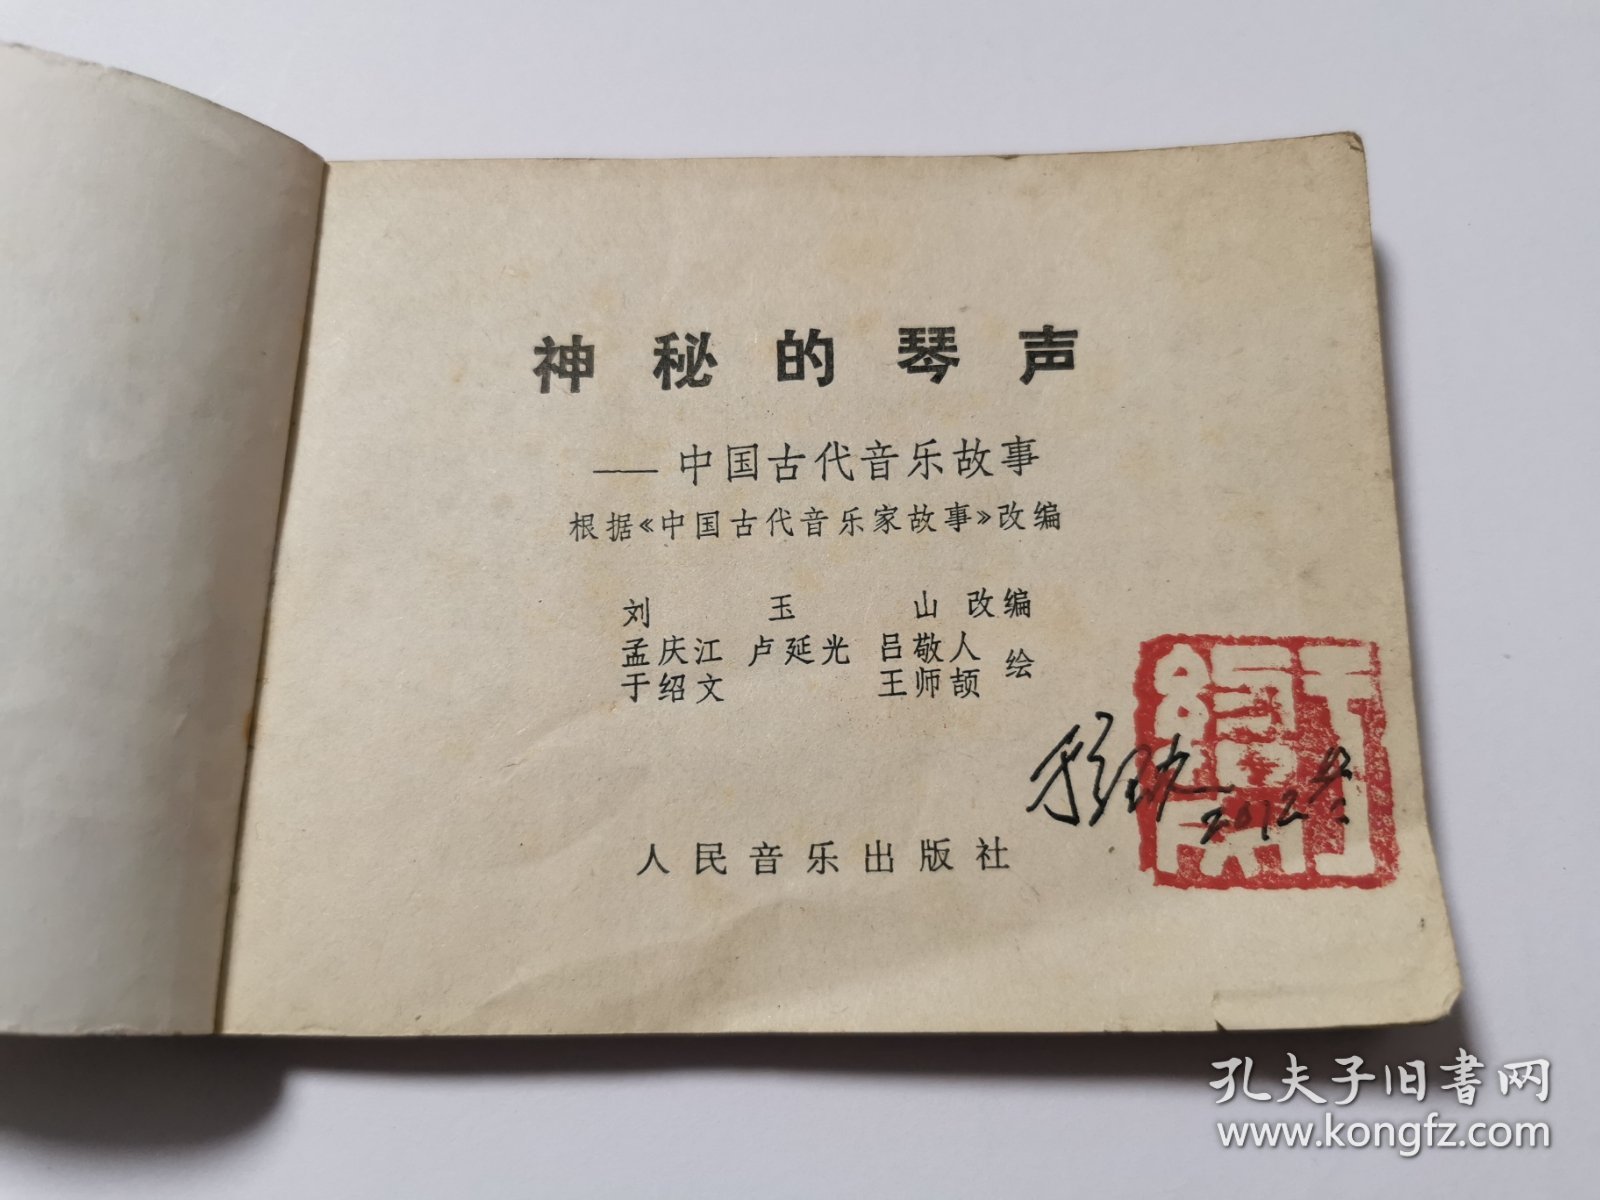 神秘的琴声
——中国古代音乐故事
根据《中国古代音乐家故事》改编
刘玉山 改编
孟庆江 卢延光 吕敬人
于绍文 王师颉 绘
人民音乐出版社
2012
孔夫子旧书网
www.kongfz.com